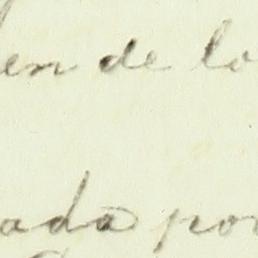 en de lo
ada por